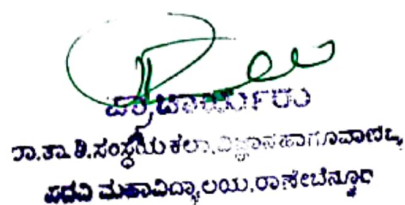 ಪ್ರಾಚಾರ್ಯರು
ರಾ.ತಾ.ಶಿ.ಸಂಸ್ಥೆಯ ಕಲಾ,ವಿಜ್ಞಾನ ಹಾಗೂ ವಾಣಿಜ್ಯ
ಪದವಿ ಮಹಾವಿದ್ಯಾಲಯ,ರಾಣೇಬೆನ್ನೂರ